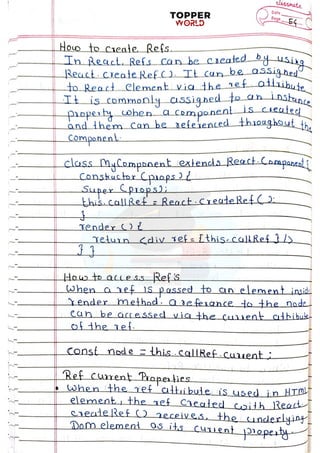 classmate
Date
Page 54
TOPPER
WORLD
How to create Refs.
In React, Refs can be created by using
React.createRef(). It can be assigned
to React element via the ref attribute
It is commonly assigned to an instance
property when a component is created
and them can be referenced throughout the
component.
class MyComponent extends React.Component{
Constructor (props) {
Super (props);
this.callRef = React.createRef();
}
render () {
return <div ref = {this.callRef} />
} }
How to access Refs
When a ref is passed to an element insid
render method. a referance to the node
can be accessed via the current attribute
of the ref.
const node = this.callRef.current;
Ref current Properties
• When the ref attribute is used in HTML
element, the ref created with React.
createRef () receives, the underlying
Dom element as its current property.